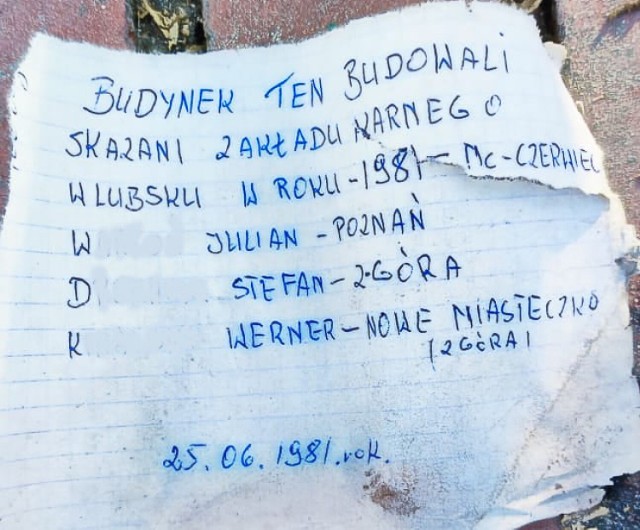 BUDYNEK TEN BUDOWALI
SKAZANI ZAKŁADU KARNEGO
W LUBSKU W ROKU-1981-MC-CZERWIEC
W JULIAN - POZNAŃ
D STEFAN - Z-GÓRA
K WERNER - NOWE MIASTECZKO
/ZGÓRA/
25.06.1981.rok.